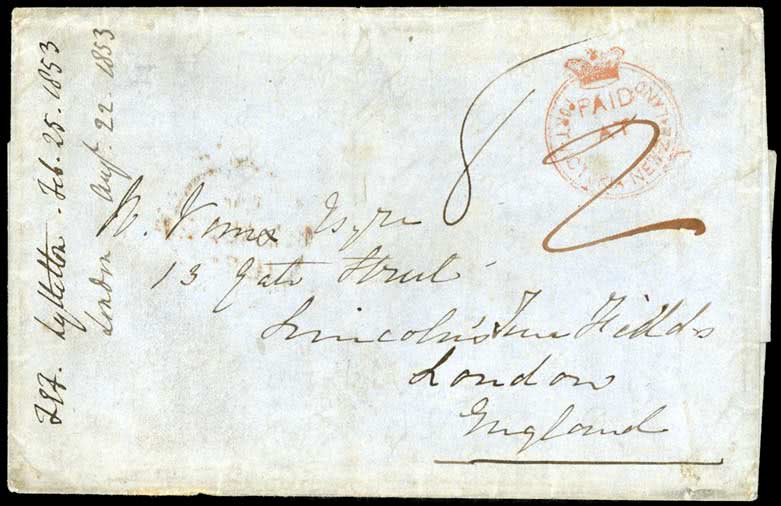 Lyttelton - Feb. 25. 1853
London Augt. 22 1853
8
PAID
AT
PORT VICTORIA NEW ZEALAND
2
Esqre
13 Gate Street
Lincoln's Inn Fields
London
England